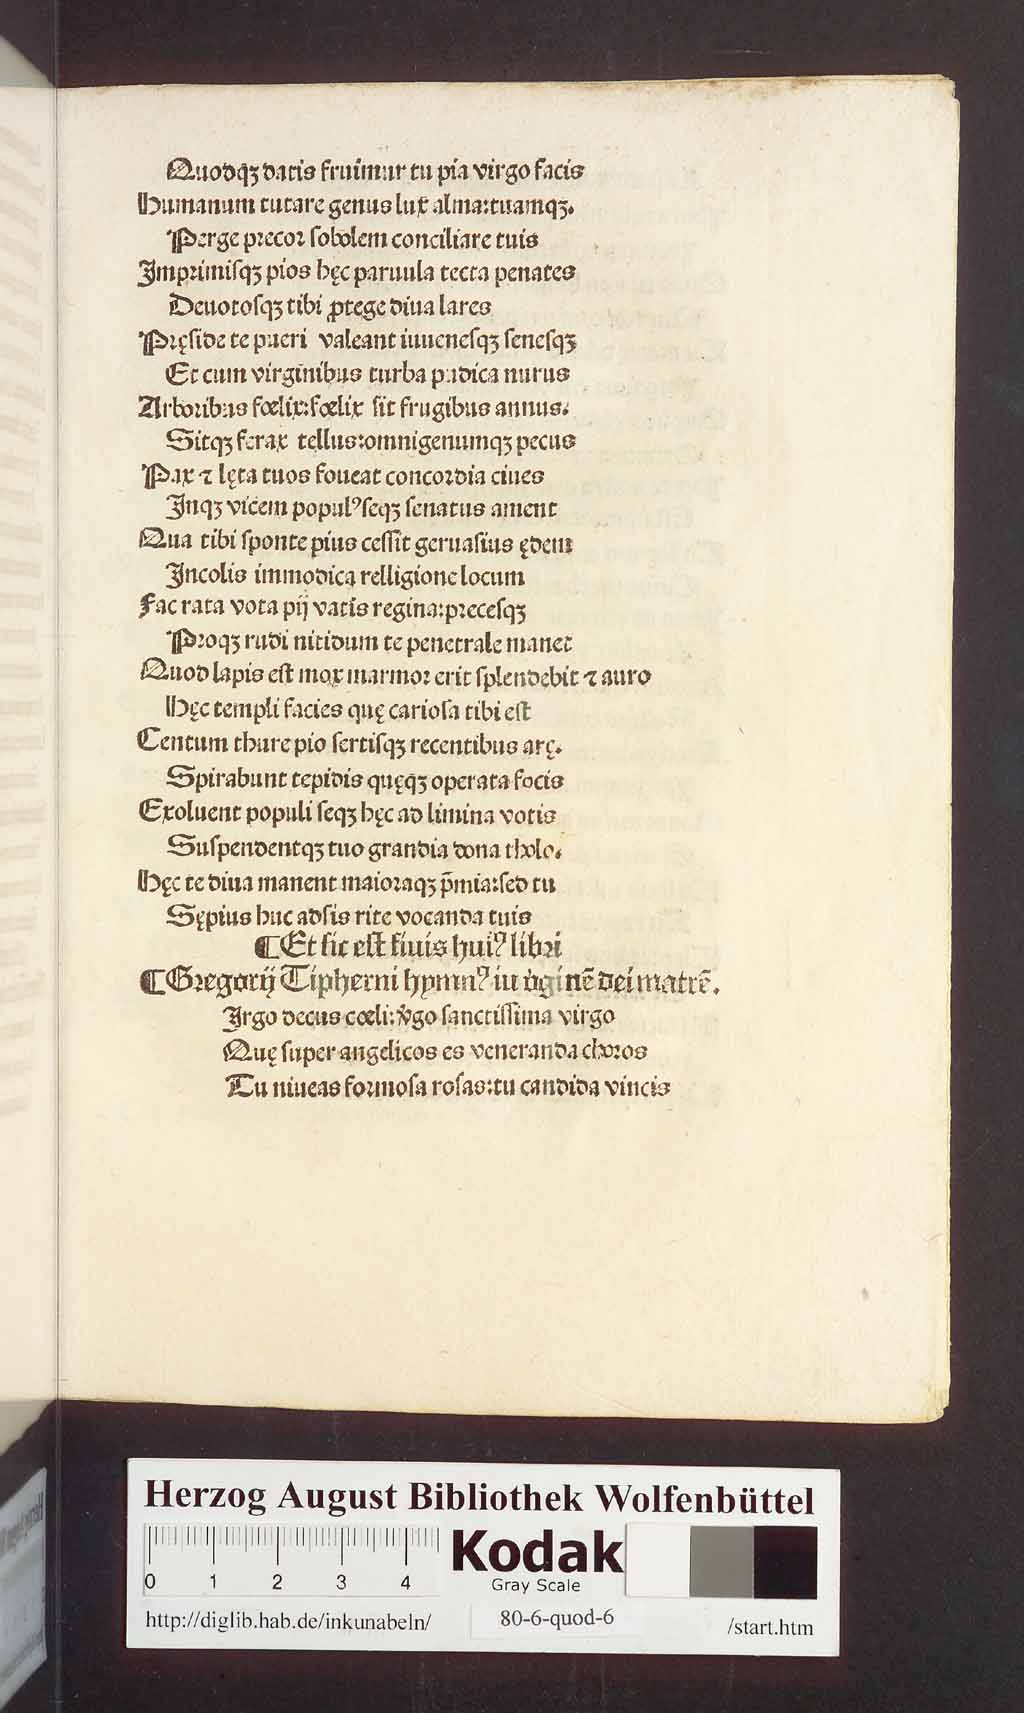 Quodqꝫ datis fruimur tu pia virgo facis
Humanum tutare genus lux alma:tuamqꝫ.
Perge precor sobolem conciliare tuis
Imprimisqꝫ pios hęc paruula tecta penates
Deuotosqꝫ tibi ꝓtege diua lares
Pręside te pueri valeant iuuenesqꝫ senesqꝫ
Et cum virginibus turba pudica nurus
Arboribus fœlix:fœlix sit frugibus annus.
Sitqꝫ ferax tellus:omnigenumqꝫ pecus
Pax ⁊ lęta tuos foueat concordia ciues
Inqꝫ vicem populꝰ seqꝫ senatus ament
Qua tibi sponte pius cessit geruasius ędem
Incolis immodica relligione locum
Fac rata vota pij vatis regina:precesqꝫ
Proqꝫ rudi nitidum te penetrale manet
Quod lapis est mox marmor erit splendebit ⁊ auro
Hęc templi facies quę cariosa tibi est
Centum thure pio sertisqꝫ recentibus arę.
Spirabunt tepidis quęqꝫ operata focis
Exoluent populi seqꝫ hęc ad limina votis
Suspendentqꝫ tuo grandia dona tholo.
Hęc te diua manent maioraqꝫ p̄mia:sed tu
Sępius huc adsis rite vocanda tuis
¶Et sic est finis huiꝰ libri
¶Gregorij Tipherni hymnꝰ in v̇ginē dei matrē.
Irgo decus cœli:v̇go sanctissima virgo
Quę super angelicos es veneranda choros
Tu niueas formosa rosas:tu candida vincis
Herzog August Bibliothek Wolfenbüttel
0 1 2 3 4
Kodak
Gray Scale
http://diglib.hab.de/inkunabeln/ 80-6-quod-6 /start.htm